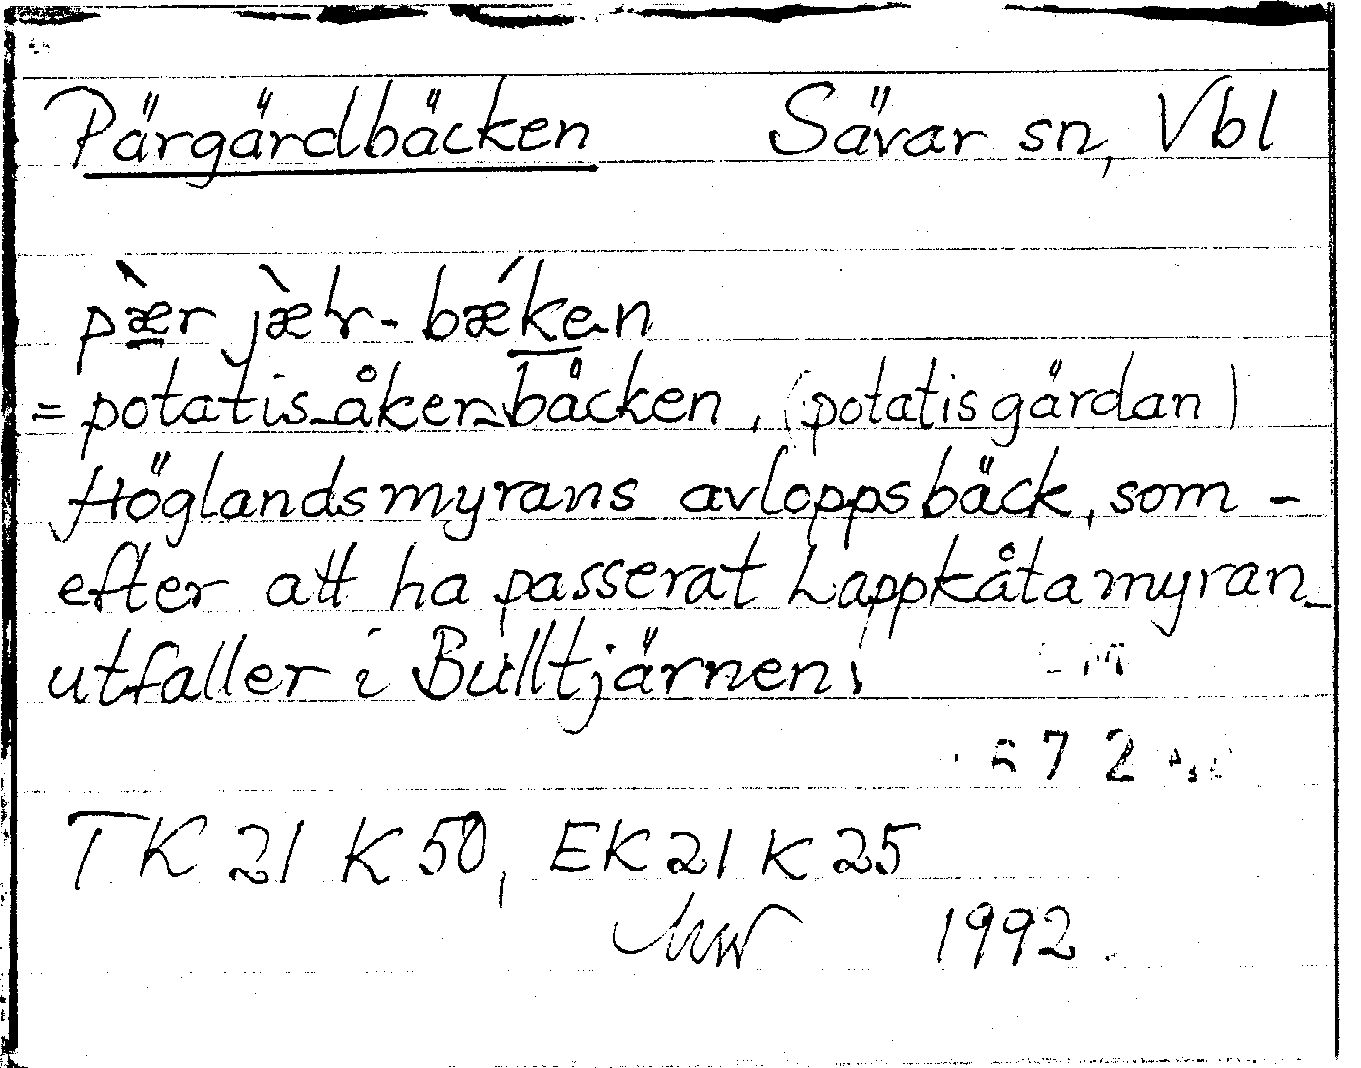 Pärgärdbäcken Sävar sn, Vbl
pæ̀r jæ̀lr-bǽken
= potatis-åker-bäcken, (potatisgärdan)
Höglandsmyrans avloppsbäck, som -
efter att ha passerat Lappkåtamyran
utfaller i Bulltjärnen.
672
TK 21 K 50, EK 21 K 25
1992.